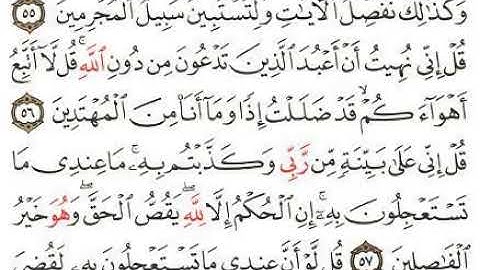 وَكَذَٰلِكَ نُفَصِّلُ ٱلْـَٔايَـٰتِ وَلِتَسْتَبِينَ سَبِيلُ ٱلْمُجْرِمِينَ ٥٥
قُلْ إِنِّى نُهِيتُ أَنْ أَعْبُدَ ٱلَّذِينَ تَدْعُونَ مِن دُونِ ٱللَّهِ ۚ قُل لَّآ أَتَّبِعُ
أَهْوَآءَكُمْ ۙ قَدْ ضَلَلْتُ إِذًا وَمَآ أَنَا۠ مِنَ ٱلْمُهْتَدِينَ ٥٦
قُلْ إِنِّى عَلَىٰ بَيِّنَةٍ مِّن رَّبِّى وَكَذَّبْتُم بِهِۦ ۚ مَا عِندِى مَا
تَسْتَعْجِلُونَ بِهِۦٓ ۚ إِنِ ٱلْحُكْمُ إِلَّا لِلَّهِ ۖ يَقُصُّ ٱلْحَقَّ ۖ وَهُوَ خَيْرُ
ٱلْفَـٰصِلِينَ ٥٧ قُل لَّوْ أَنَّ عِندِى مَا تَسْتَعْجِلُونَ بِهِۦ لَقُضِىَ